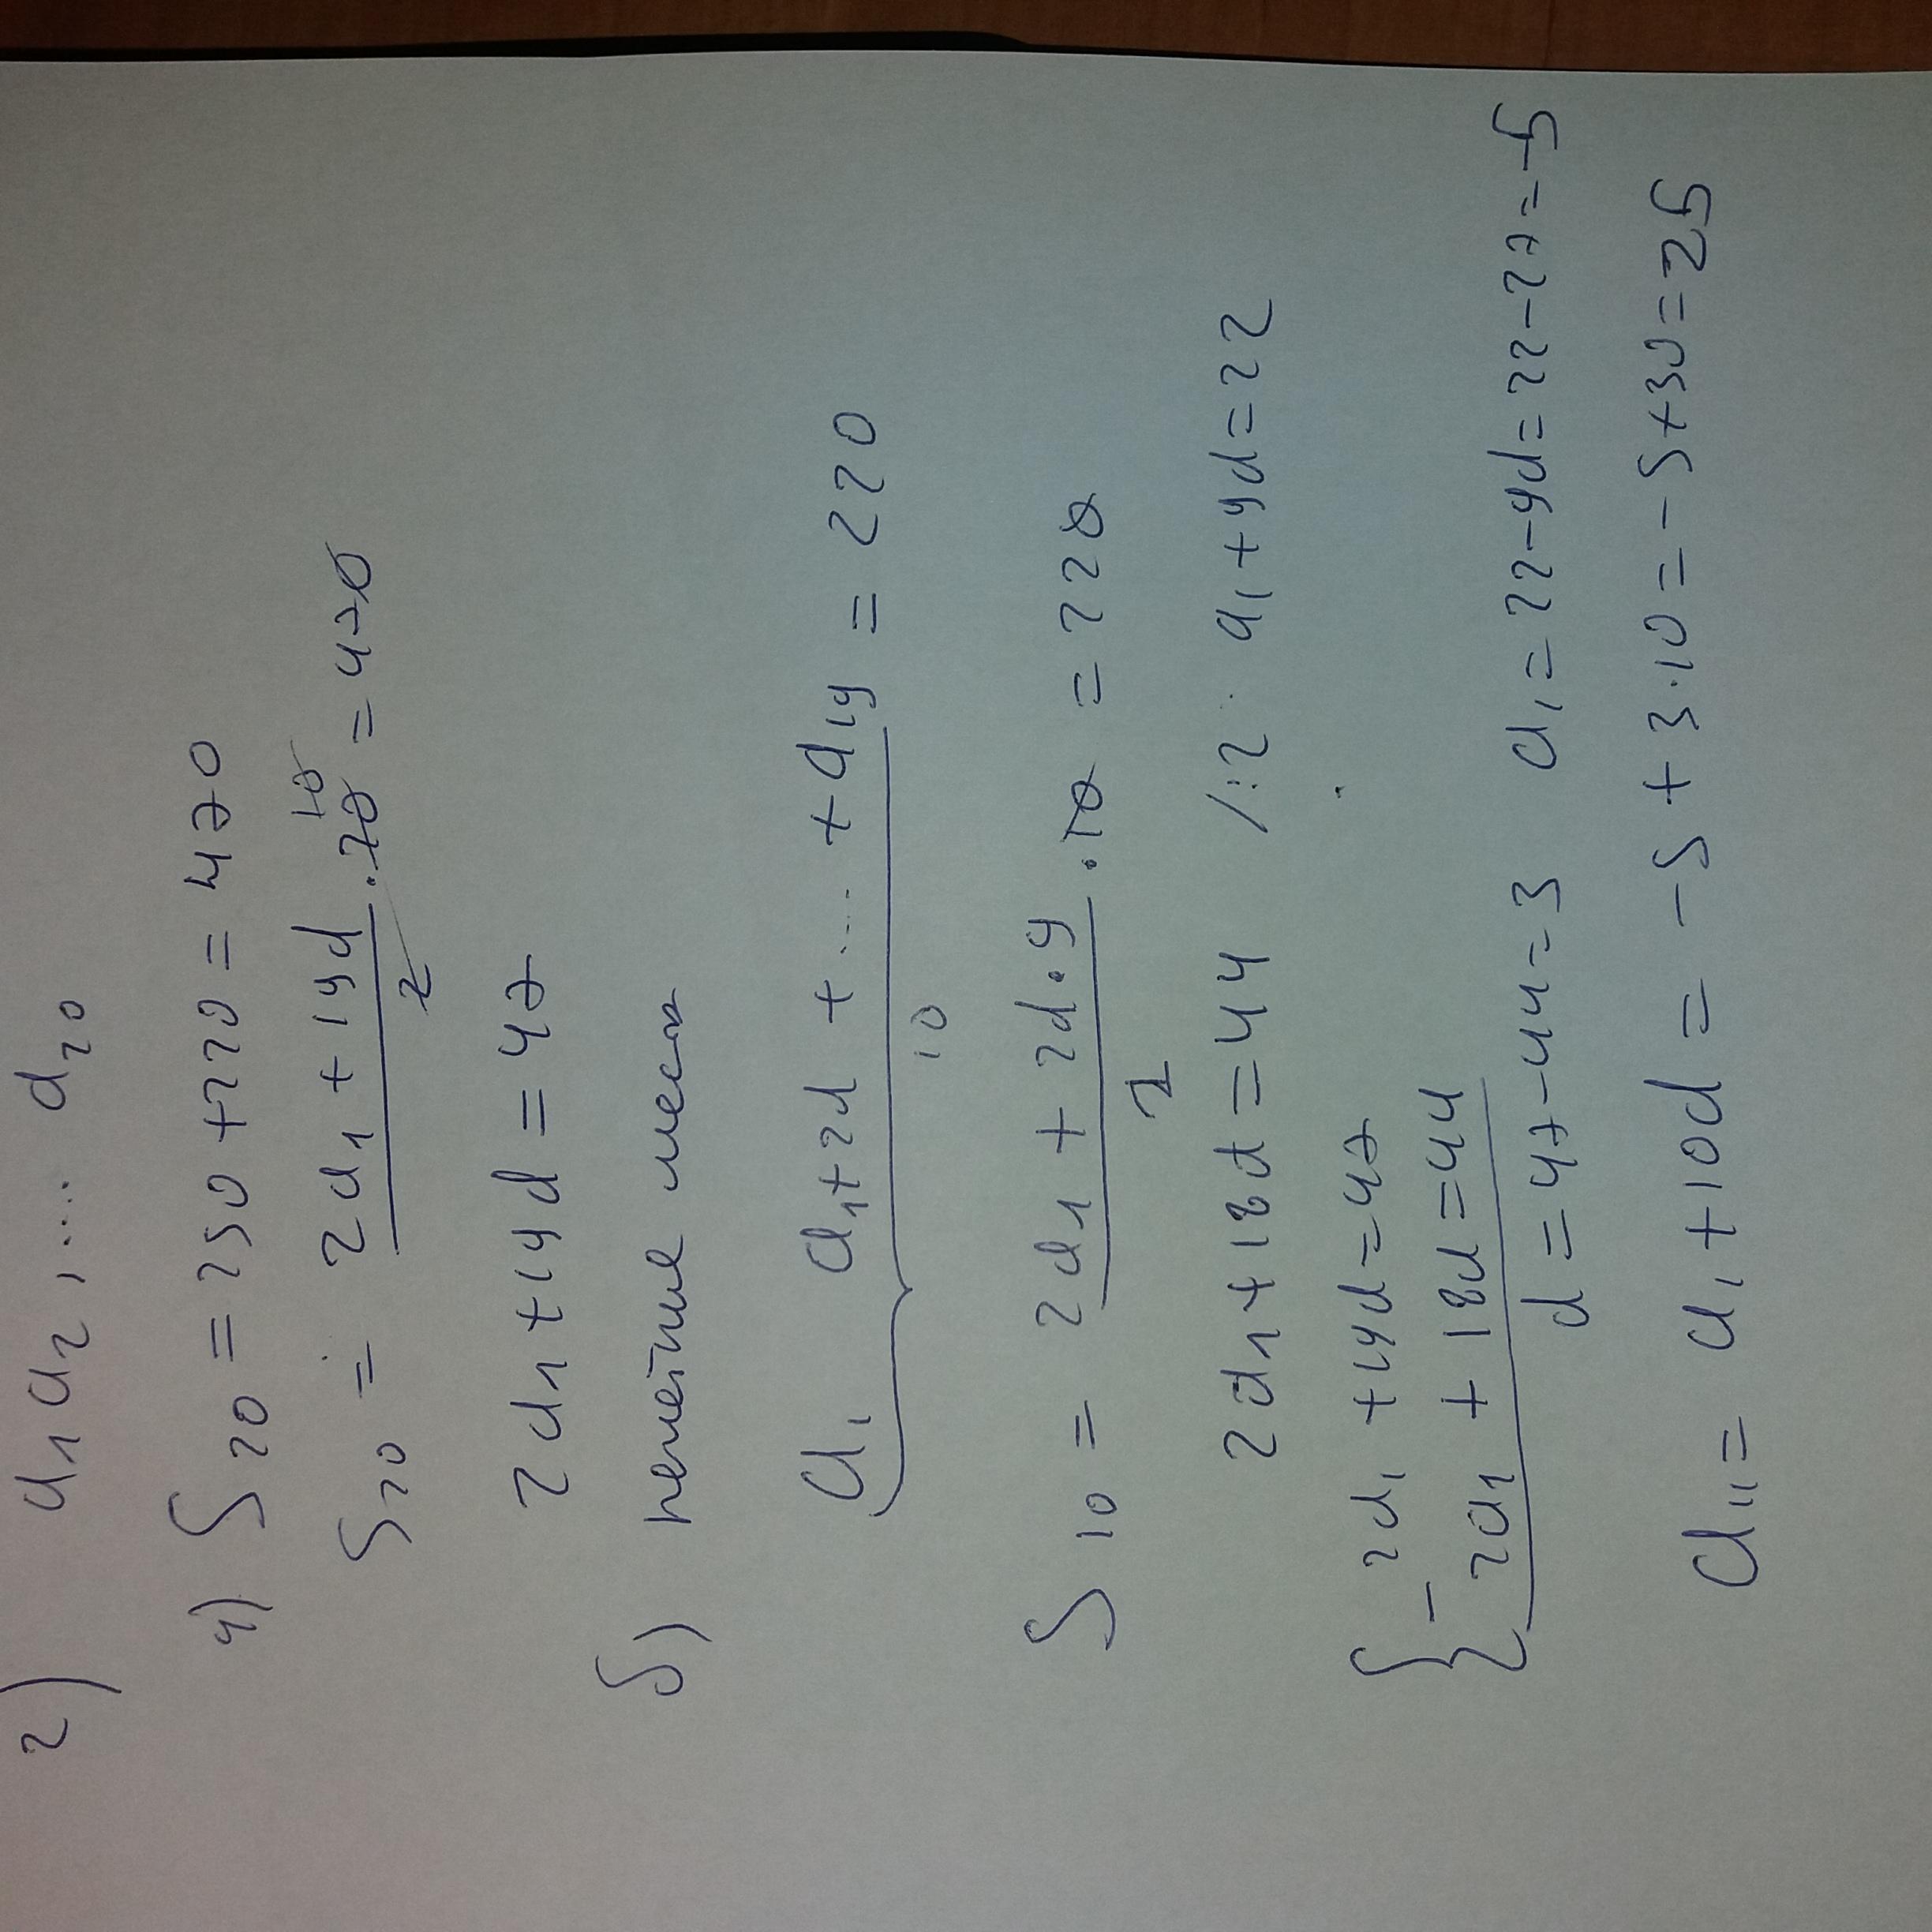 2) a₁ a₂, .... a₂₀
4) S₂₀ = 250 + 220 = 470
S₂₀ = (2a₁ + 19d)/2 · 20 10 = 470
2a₁ + 19d = 47
б) нечётные места
a₁ a₁+2d + .... + a₁₉ = 220
10
S₁₀ = (2a₁ + 2d·9)/2 · 10 = 220
2a₁ + 18d = 44 /:2 a₁ + 9d = 22
{ - 2a₁ + 19d = 47
2a₁ + 18d = 44
d = 47 - 44 = 3 a₁ = 22 - 9d = 22 - 27 = -5
a₁₁ = a₁ + 10d = -5 + 3·10 = -5 + 30 = 25